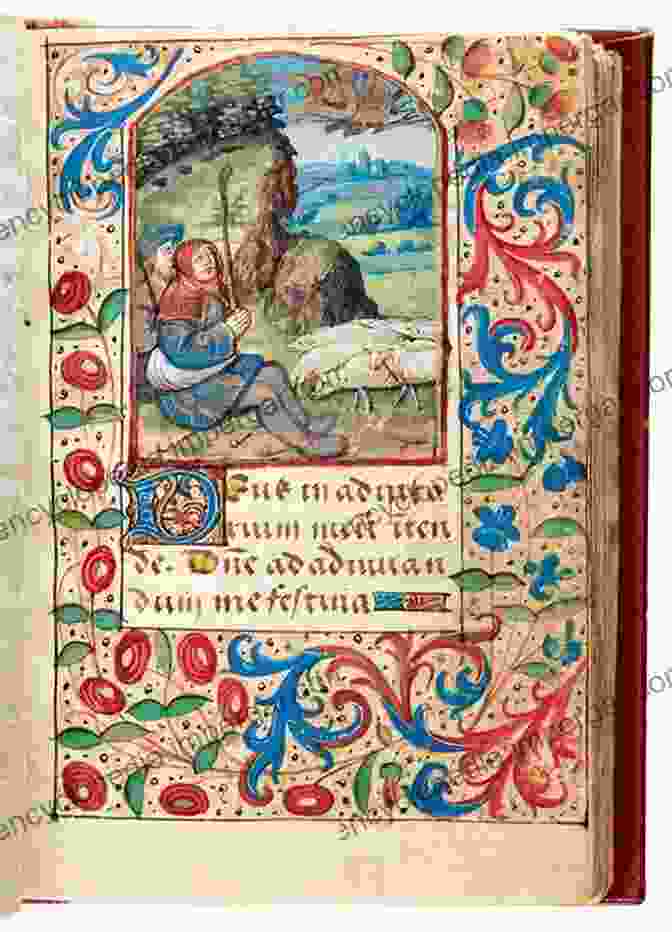 Deus in adiuto
rium meū inten
de. Dñe ad adiuuan
dum me festina